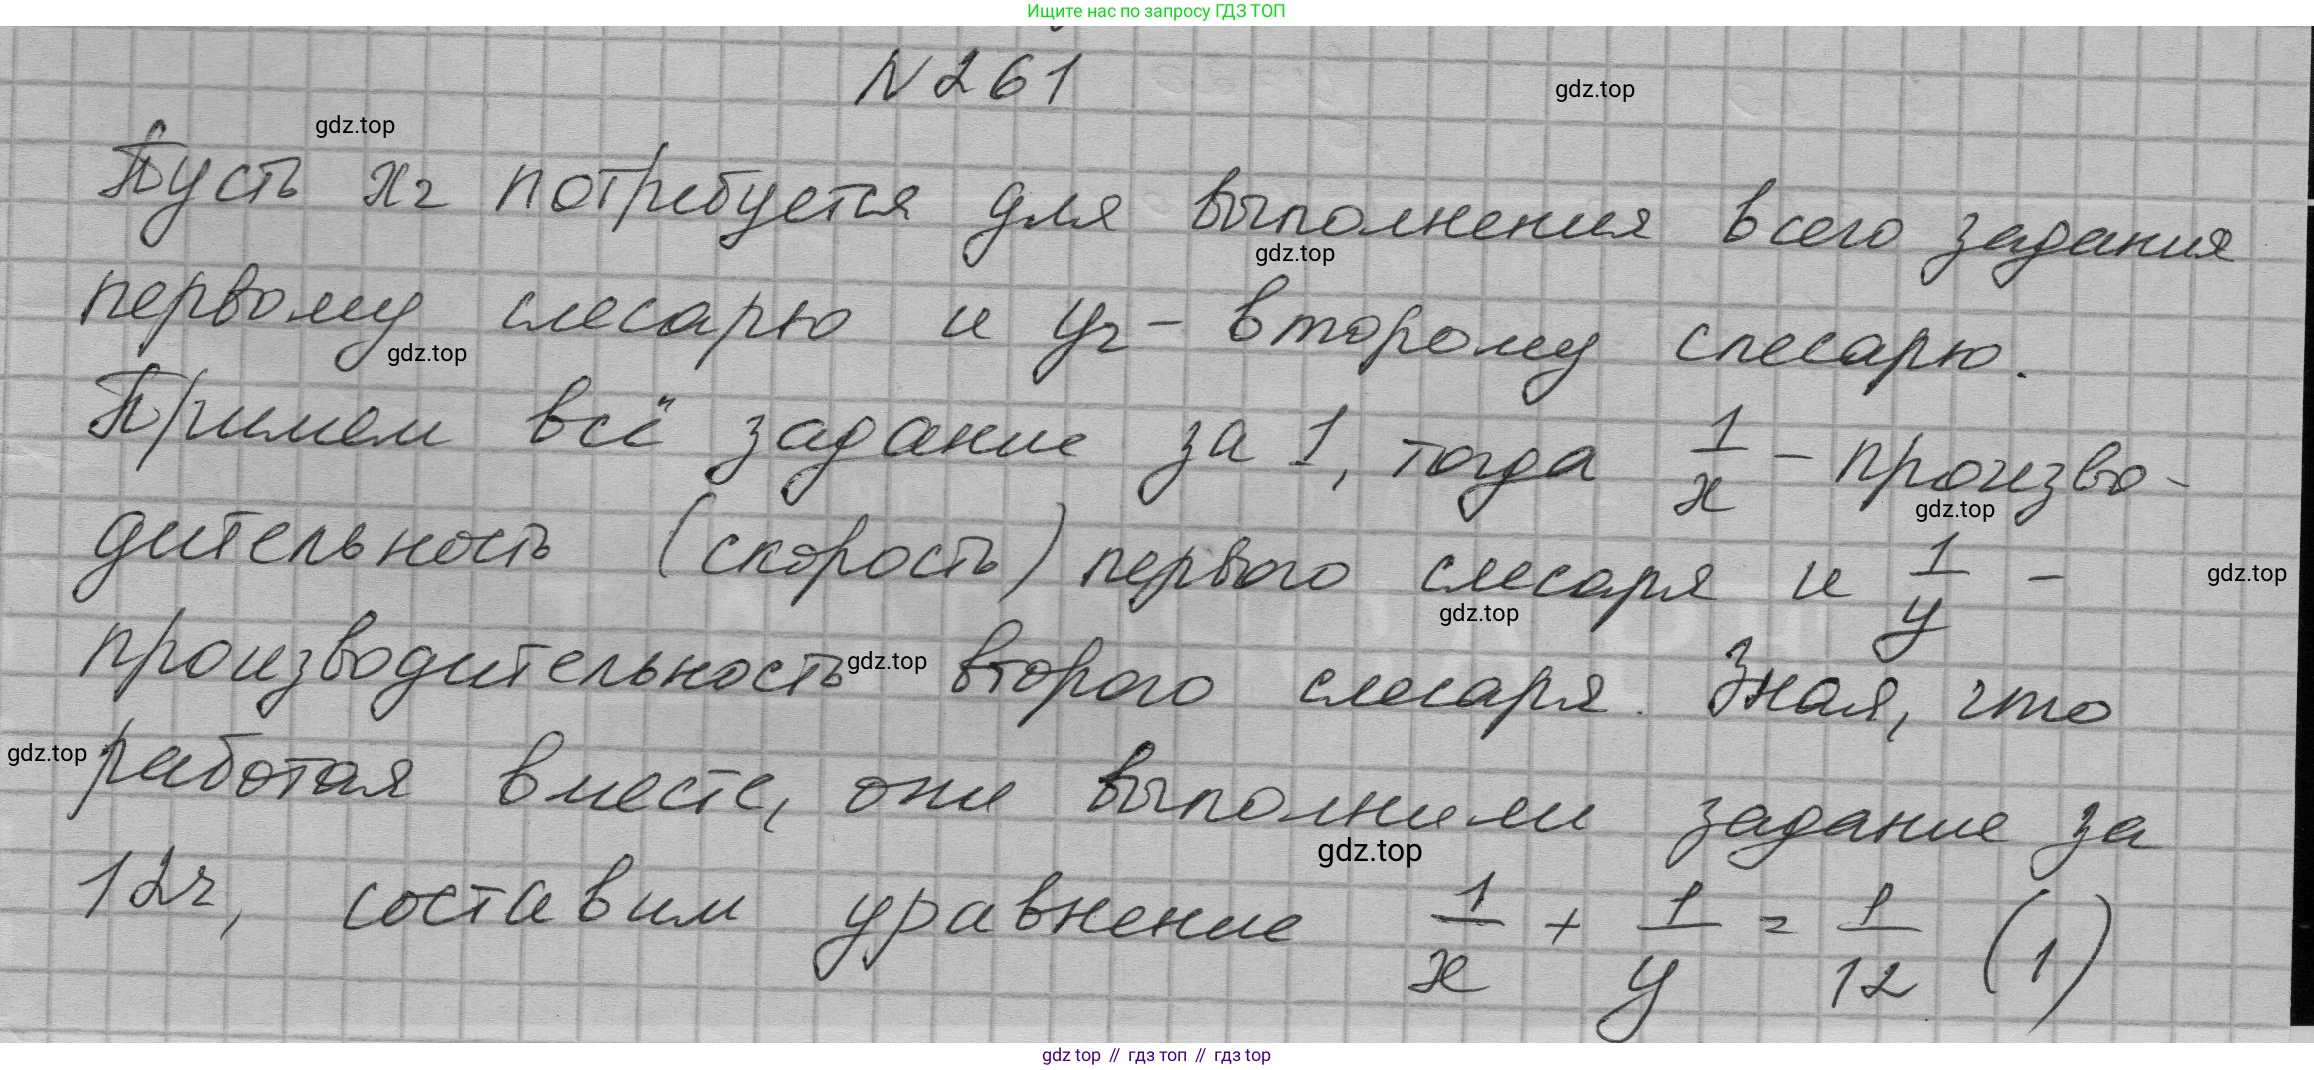 Ищите нас по запросу ГДЗ ТОП
N 261
gdz.top
gdz.top
Пусть xч потребуется для выполнения всего задания
gdz.top
первому слесарю и yч – второму слесарю.
gdz.top
Примем всё задание за 1, тогда 1/x – произво-
gdz.top
дительность (скорость) первого слесаря и 1/y –
gdz.top
gdz.top
производительность второго слесаря. Зная, что
gdz.top
gdz.top
работая вместе, они выполнили задание за
gdz.top
12ч, составим уравнение 1/x + 1/y = 1/12 (1)
gdz top // гдз топ // гдз top